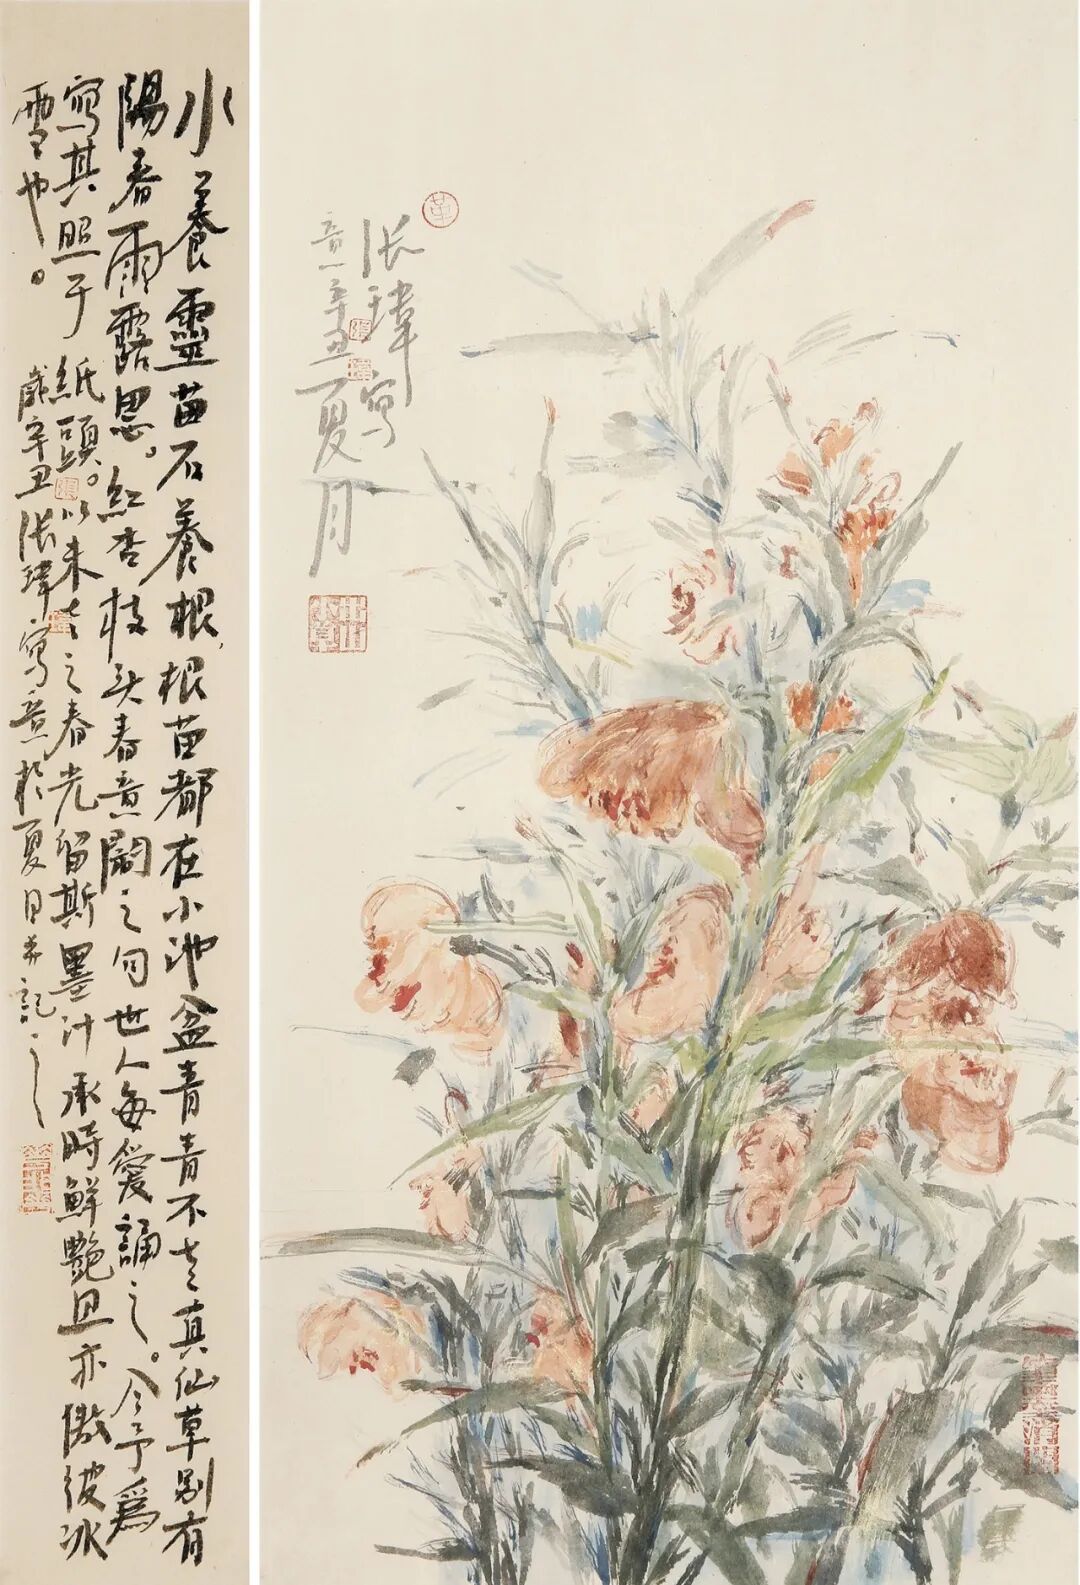 水養靈苗石養根根苗都在小池盆青青不老真仙草別有
陽春雨露恩。紅杏枝头春意鬧之句世人每愛誦之。今予為
寫其照于紙頭。以未老之春光留斯墨汁承時鮮艷且亦傲彼冰
雪也。
歲辛丑張瑋寫意於夏日並記之
張瑋寫
意辛丑夏月